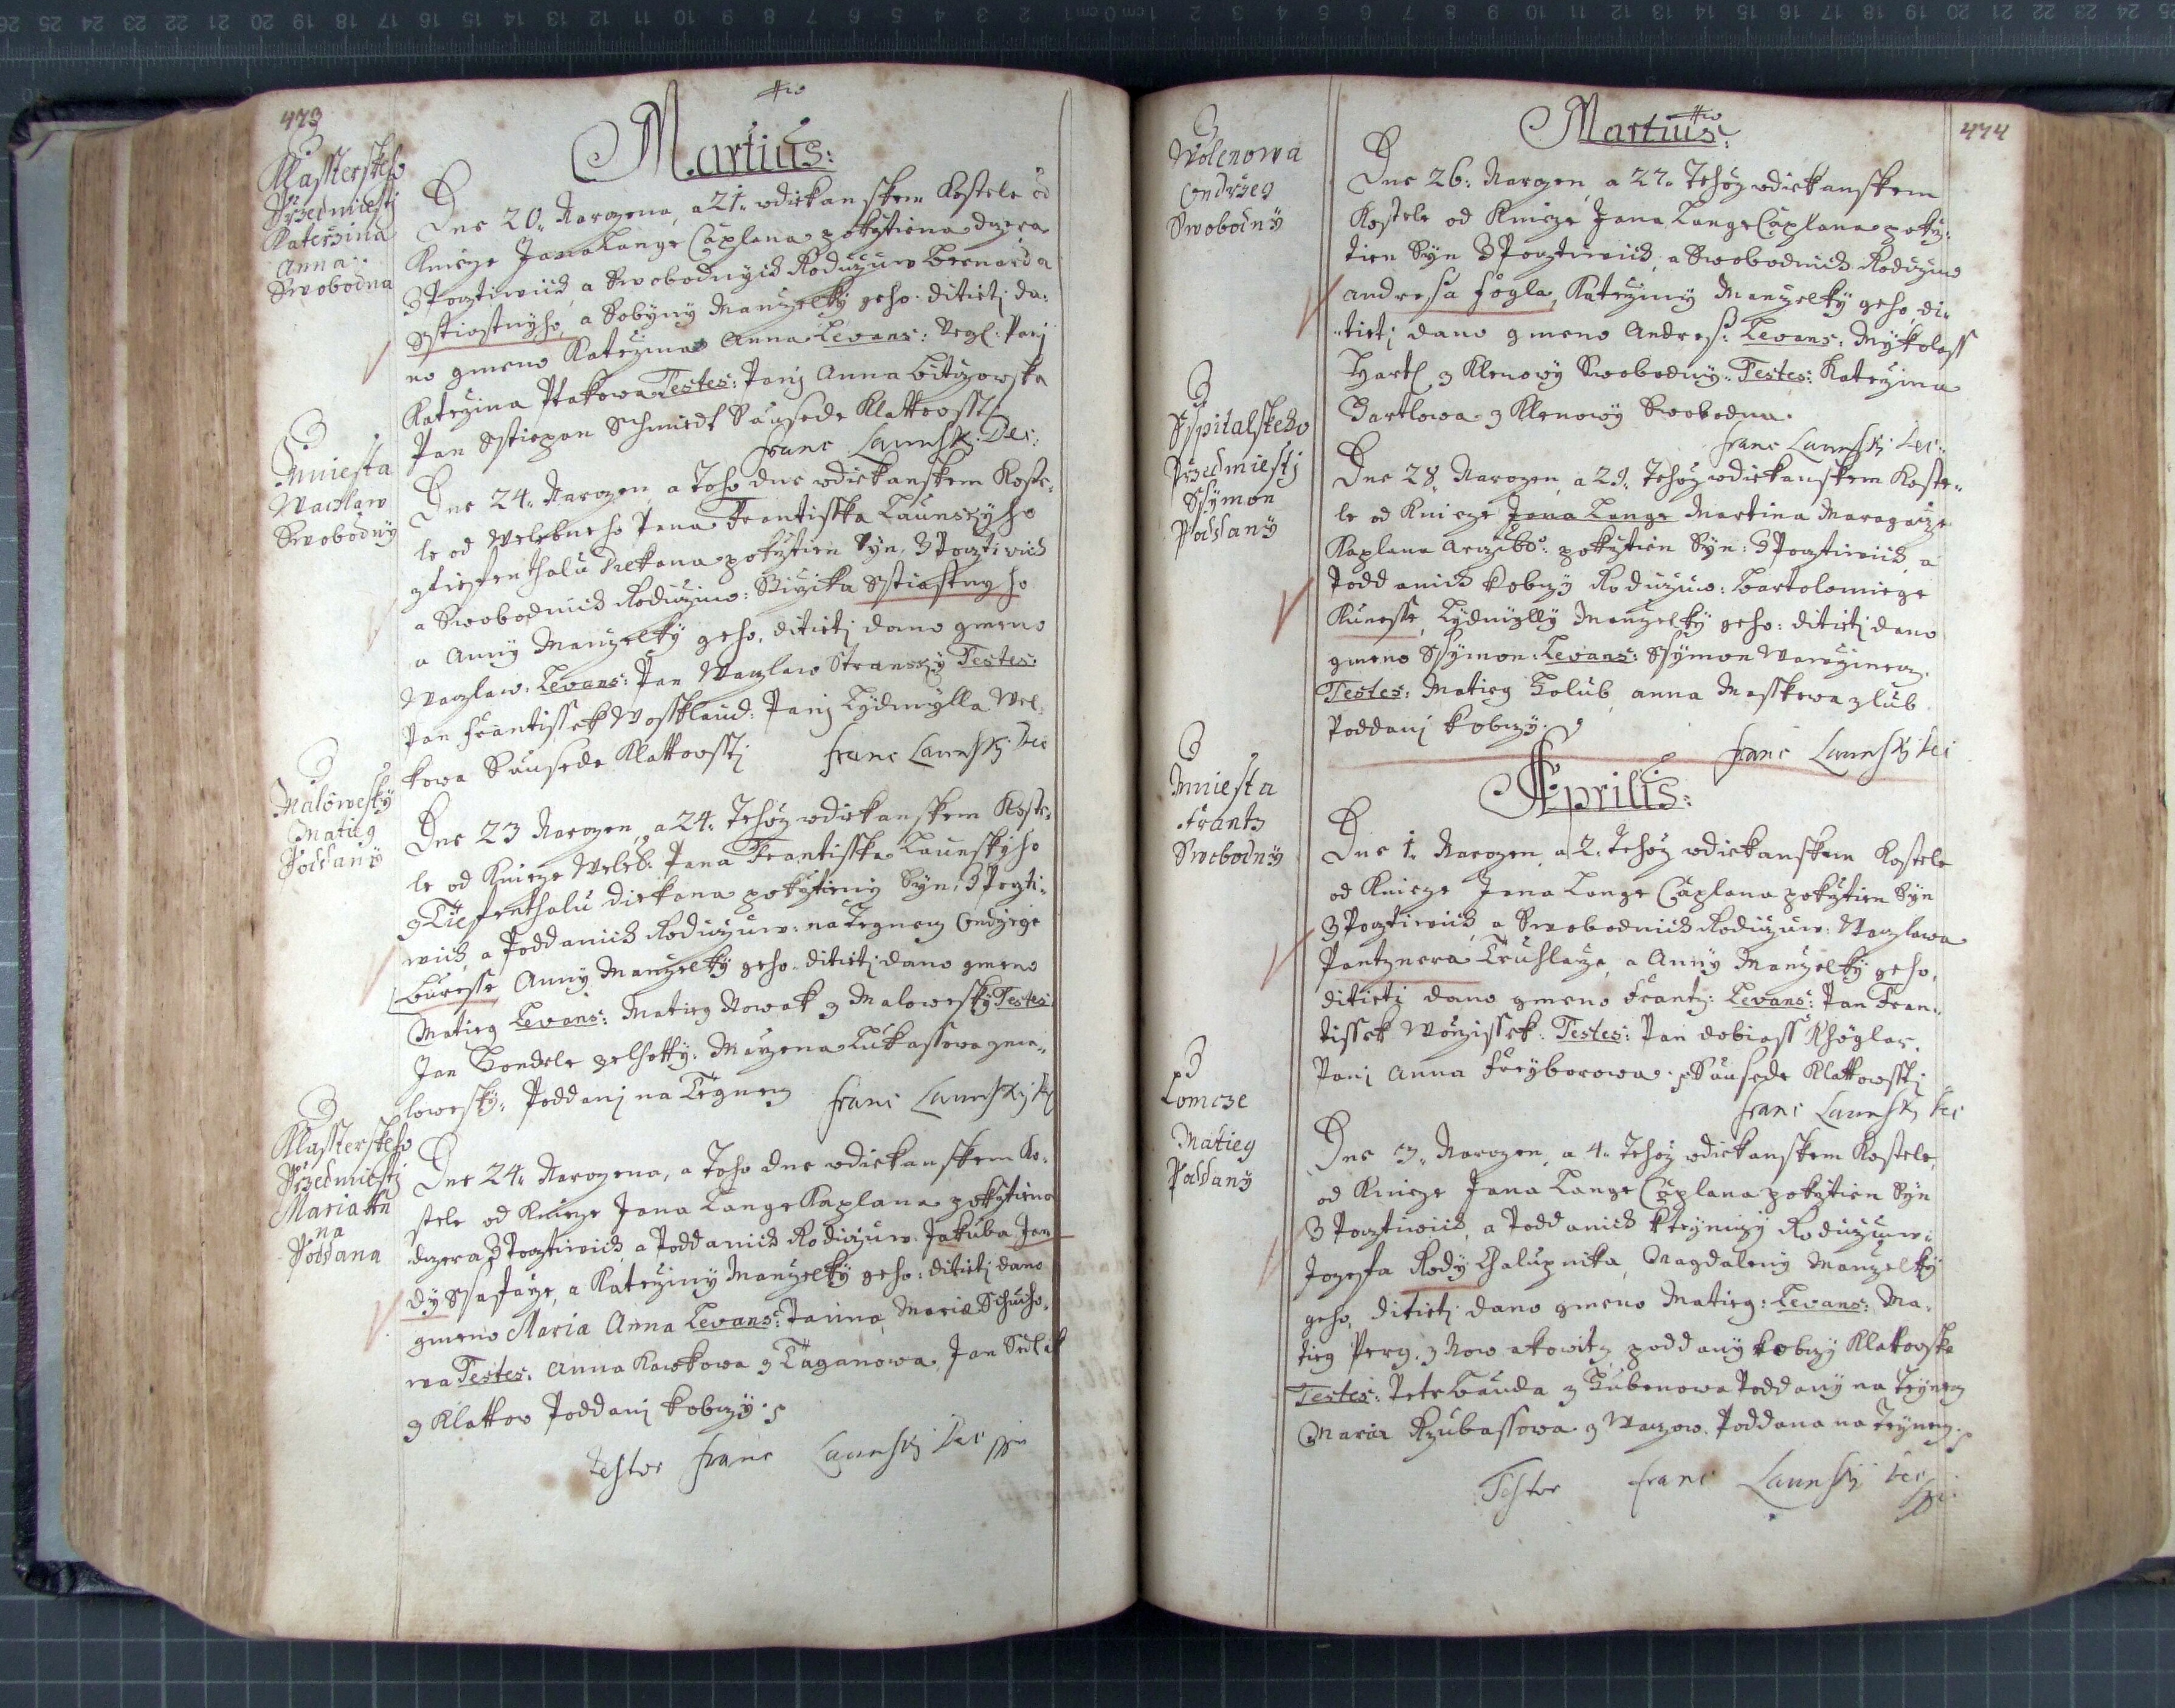 473
Martius:
Klassterskeho
Przedmiesti
Katerzina
Anna
Swobodna
Dne 20. Narozena, a 21. wdiekanskem Kostele od
Knieze Jana Lange Caplana pokrztiena dczera
z Pocztiwich, a Swobodnych Rodiczuw Bernarda
Sstiastnyho, a Sobyny Manzelky geho. ditieti da:
no gmeno Katerzina Anna Levans: Urgl: Pani
Katerzina Ptakowa Testes: Pani Anna
Pan Sstiepan Schmidt Sausede Klattowssti
Franc Launsky Dec:
Zmiesta
Waczlaw
Swobodny
Dne 24. Narozen, a Toho dne wdiekanskem Koste:
le od Welebneho Pana Frantisska Launskyho
z Tieffenthalu Diekana pokrztien Syn, z Pocztiwich
a Swobodnich Rodiczuw: Sstiastnyho
a Anny Manzelky geho, ditieti dano gmeno
Waczlaw: Levans: Pan Waczlaw Stransky Testes:
Pan Frantissek Wosskland: Pani Lydmylla Wel:
kowa Sausede Klattowssti Franc Launsky Dec
Malowesky
Matieg
Poddany
Dne 23 Narozen, a 24. Tehoz wdiekanskem Koste:
le od Knieze Weleb: Pana Frantisska Launskyho
z Tieffenthalu diekana pokrztieny Syn, z Poczti:
wich, a Poddanich Rodiczuw: na Tegnecz Ondrzege
Buresse, Anny Manzelky geho. ditieti dano gmeno
Matieg Levans: Matieg Nowak z Malowesky Testes
Jan Mandelka Lukassowa zma:
lowesky, Poddani na Tegnecz Franc Launsky Dec
Klassterskeho
Przedmiesti
Marianna
Poddana
Dne 24. Narozena, a Toho dne wdiekanskem Ko:
stele od Knieze Jana Lange Kaplana pokrztiena
dczera z Pocztiwich a Poddanich Rodiczuw. Jakuba Jan
dy Ssafarze, a Katerziny Manzelky geho: ditieti dano
gmeno Maria Anna Levans: Panna Maria Schucho:
wa Testes: Anna Kawkowa z Taganowa, Jan Sedlak
z Klattow Poddani kobczy.
Testor Franc Launsky Dec mp
474
Martius:
Wolenowa
Ondrzeg
Swobodny
Dne 26. Narozen, a 27. Tehoz wdiekanskem
Kostele od Knieze Jana Lange Caplana pokrz:
tien Syn z Pocztiwich, a Swobodnich Rodiczuw
Andressa Fogla, Katerziny Manzelky geho, di:
tieti dano gmeno Andress: Levans: Mykolass
Hartl z Klenowy Swobodny. Testes: Katerzina
Hartlowa z Klenowy Swobodna.
Franc Launsky Dec:
Sspitalskeho
Przedmiesti
Ssymon
Poddany
Dne 28. Narozen, a 29. Tehoz wdiekanskem Koste:
le od Knieze Jana Lange Martina
Kaplana pokrztien Syn: z Pocztiwich, a
Poddanich kobczy Rodiczuw: Bartolomiege
Kunesse, Lydmylly Manzelky geho: ditieti dano
gmeno Ssymon: Levans: Ssymon
Testes: Matieg Holub, Anna Masskowa zlub
Poddani kobczy.
Franc Launsky Dec
Aprilis:
Zmiesta
Frantz
Swobodny
Dne 1. Narozen, a 2. Tehoz wdiekanskem Kostele
od Knieze Jana Lange Caplana pokrztien Syn
z Pocztiwich, a Swobodnich Rodiczuw: Waczlawa
Pantznera Truhlarze, a Anny Manzelky geho,
ditieti dano gmeno Frantz: Levans: Pan Fran:
tissek Woržissek: Testes: Pan dobiass Khöglar,
Pani Anna Freyborowa. Sausede Klattowssti
Franc Launsky Dec
Lomcze
Matieg
Poddany
Dne 3. Narozen, a 4. Tehoz wdiekanskem Kostele,
od Knieze Jana Lange Caplana pokrztien Syn
z Pocztiwich, a Poddanich Rodiczuw:
Jozeffa Rody Chalupnika, Magdaleny Manzelky
geho, ditieti dano gmeno Matieg: Levans: Ma:
tieg Perg. z Nowakowitz poddany kobczy Klattowske
Testes: Petr Bauda z Lubenowa Poddany na Teynecz
Maria Rzubassowa z Poddana na Teynecz.
Testor Franc Launsky Dec mp